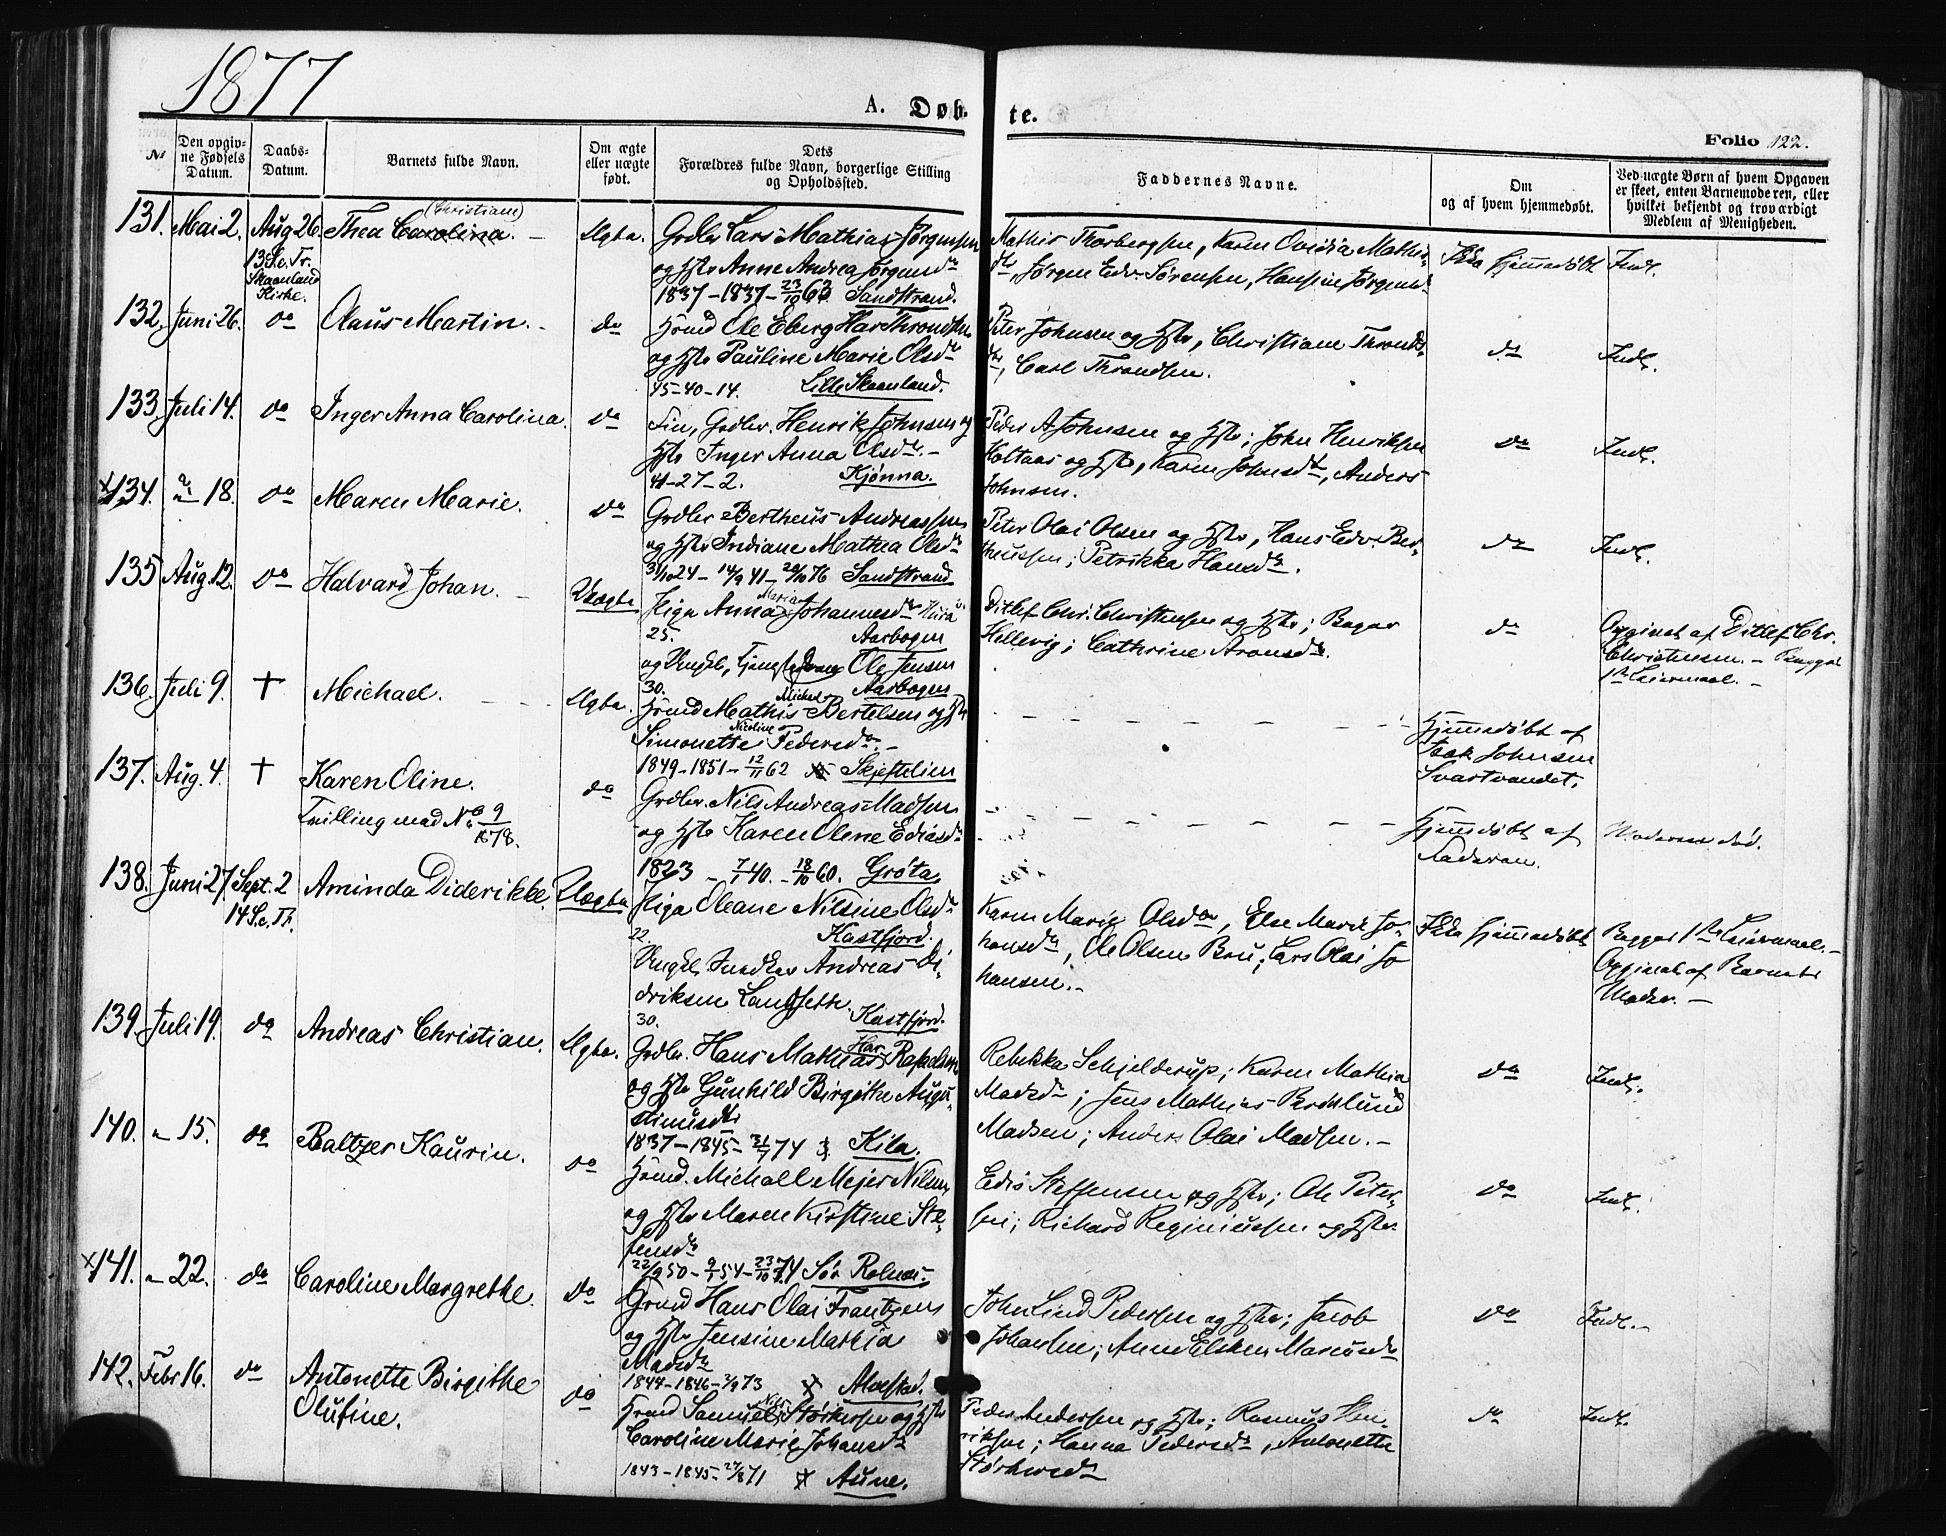 1877
A. Døb-
te.
Folio 122.
№
Den opgiv-
ne Fødsels
Datum.
Daabs-
Datum.
Barnets fulde Navn.
Om ægte
eller uægte
født.
Dets
Forældres fulde Navn, borgerlige Stilling
og Opholdssted.
Faddernes Navne.
Om
og af hvem hjemmedøbt.
Ved uægte Børn af hvem Opgaven
er skeet, enten Barnemoderen, eller
hvilket bekjendt og troværdigt
Medlem af Menigheden.
131. Mai 2. Aug 26 Thea Carolina. (Christiane) Ægte.
13 S. e. Tr.
Skaanland
Kirke.
Grdbr Lars Mathias Jørgensen
og Hstr Anne Andrea Jørgensdr
1837-1837-23/10 63 Sandstrand.
Mathis Thorbergsen, Karen Ovidia Mathis-
dr, Jørgen Edv. Sørensen, Hansine Jørgensdr
Ikke hjemmedøbt Indl.
132. Juni 26. do Olaus Martin. do
Hsmd Ole Eberg Har Throndsen
og Hstr Pauline Marie Olsdr
45-40-14. Lille Skaanland.
Peter Johnsen og Hstr, Christiane Thronds-
dr, Carl Throndsen.
do Indl.
133. Juli 14. do Inger Anna Carolina. do
Fin, Grdbr. Henrik Johnsen og
Hstr Inger Anna Olsdr.
41-27-2. Kjønna.
Peder A Johnsen og Hstr; John Henriksen
Holtaas og Hstr, Karen Johnsdr, Anders
Johnsen.
do Indl.
x134. " 18. do Maren Marie. do
Grdbr Bertheus Andreassen
og Hstr Indiane Mathea Olsdr
3/10 24 - 14/9 41 - 20/10 76 Sandstrand
Peter Olai Olsen og Hstr, Hans Edv. Ber-
theussen; Petrikka Hansdr.
do Indl.
135 Aug. 12. do Halvard Johan. Uægte
Pige Anna Maria Johannesdr
25. Aarbogen
og Ungk. Ole Jensen
30. Aarbogen
Ditlef Chr. Christensen og Hstr; Roger
Hellevig; Cathrine Aronsdr.
do
Opgivet af Ditlef Chr.
Christensen. - Begges
1ste Leiermaal. -
136. Juli 9. † Michael. Ægte.
Hsmd Mathis Michal Bertelsen og Hstr
Simonette Nicoline Pedersdr. -
1849-1851-12/11 62 Skjeftelien
Hjemmedøbt af
Isak Johnsen
Svartvandet.
137. Aug. 4. † Karen Oline. do
Tvilling med No 9/1878.
Grdbr. Nils Andreas Madsen
og Hstr Karen Oline Ediasdr
1823 - 7/1 40. - 18/10 60. Grøta
Hjemdøbt af
Faderen.
Moderen død.
138. Juni 27 Sept. 2 Aminda Diderikke. Uægte
14 S. e. Tr.
Pige Oleane Nilsine Olsdr
22. Kastfjord.
Ungk. Snedker Andreas Di-
driksen Langseth.
30. Kastfjord.
Karen Marie Olsdr, Else Marie Jo-
hansdr, Ole Olsen Bru; Lars Olai Jo
hansen. -
Ikke hjemmedøbt
Begges 1ste Leiermaal. -
Opgivet af Barnets
Moder. -
139. Juli 19. do Andreas Christian. Ægte.
Grdbr. Hans Mathias Har Rafaelsen
og Hstr Gunhild Birgithe Augu-
stinusdtr
1837-1845-31/7 74 Kila.
Rebekka Schjelderup; Karen Mathia
Madsdr; Jens Mathias Berthlund
Madsen; Anders Olai Madsen. -
do Indl.
140. " 15. do Baltzer Kaurin. do
Hsmd. Michall Mejer Nilsen
og Hstr Maren Kirstine Ste-
fensdr
22/9 50 - 9/1 54 - 23/10 74 Sør Rolnes.
Edis Steffensen og Hstr; Ole Peter-
sen; Richard Reginiussen og Hstr.
do Indl.
x141. " 22. do Caroline Margrethe. do
Grmd Hans Olai Frantzen
og Hstr Jensine Mathia
Madsdr
1844-1846-2/9 73 Alvestad.
John Lind Pedersen og Hstr; Jacob
Johansen; Anne Elen Mariusdr
do Indl. -
142. Febr 16. do Antonette Birgithe
Olufine. do
Hsmd Samuel Nils Størkersen og Hstr
Caroline Marie Johansdr
1843-1845-27/8 71 Aune.
Peder Andersen og Hstr; Rasmus Hen-
riksen; Hanna Pedersdr, Antonette
Størkersdr
do Indl.